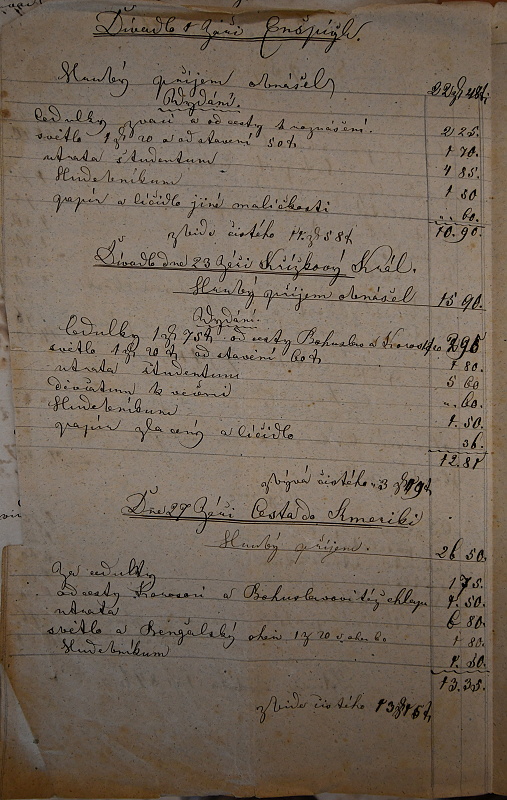 Divadlo 1 Září Enšpígl.
Hrubý příjem obnášel 22 zl 48 kr
Vydání.
Cedulky zvací a od cesty k roznášení. 2 25.
světlo 1 zl 20 a od stavení 50 k 1 70.
utrata studentum 4 85.
Hudebníkum 1 50
papír a líčidlo jiné maličkosti „ 60.
zbide čistého 11 zl 58 k 10.90.
Divadlo dne 23 Září Křížkový Král.
Hrubý příjem obnášel 15 90.
Vydání.
Cedulky 1 zl 75 k od cesty Bohuslav a 2 95
světlo 1 zl 20 k od stavení 60 k 1 80.
utrata studentum 5 60
děvčatum k večeři „ 60.
Hudebníkum 1. 50.
papír zlacený a líčidlo 36.
12.81
zbývá čistého 3 zl 19 k
Dne 27 Září Cesta do Ameriki
Hrubý příjem. 26 50.
Za cedulky 1 75.
od cesty a Bohuslavovi též chlapu 1. 50.
utrata 6 80.
světlo a Bengálský oheň 1 z 20 1 80.
Hudebníkum 1. 50.
13.35.
zbide čistého 13 zl 15 k